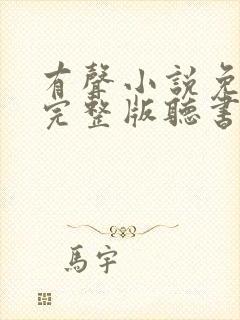 有聲小說免
完整版聽書
馬宇